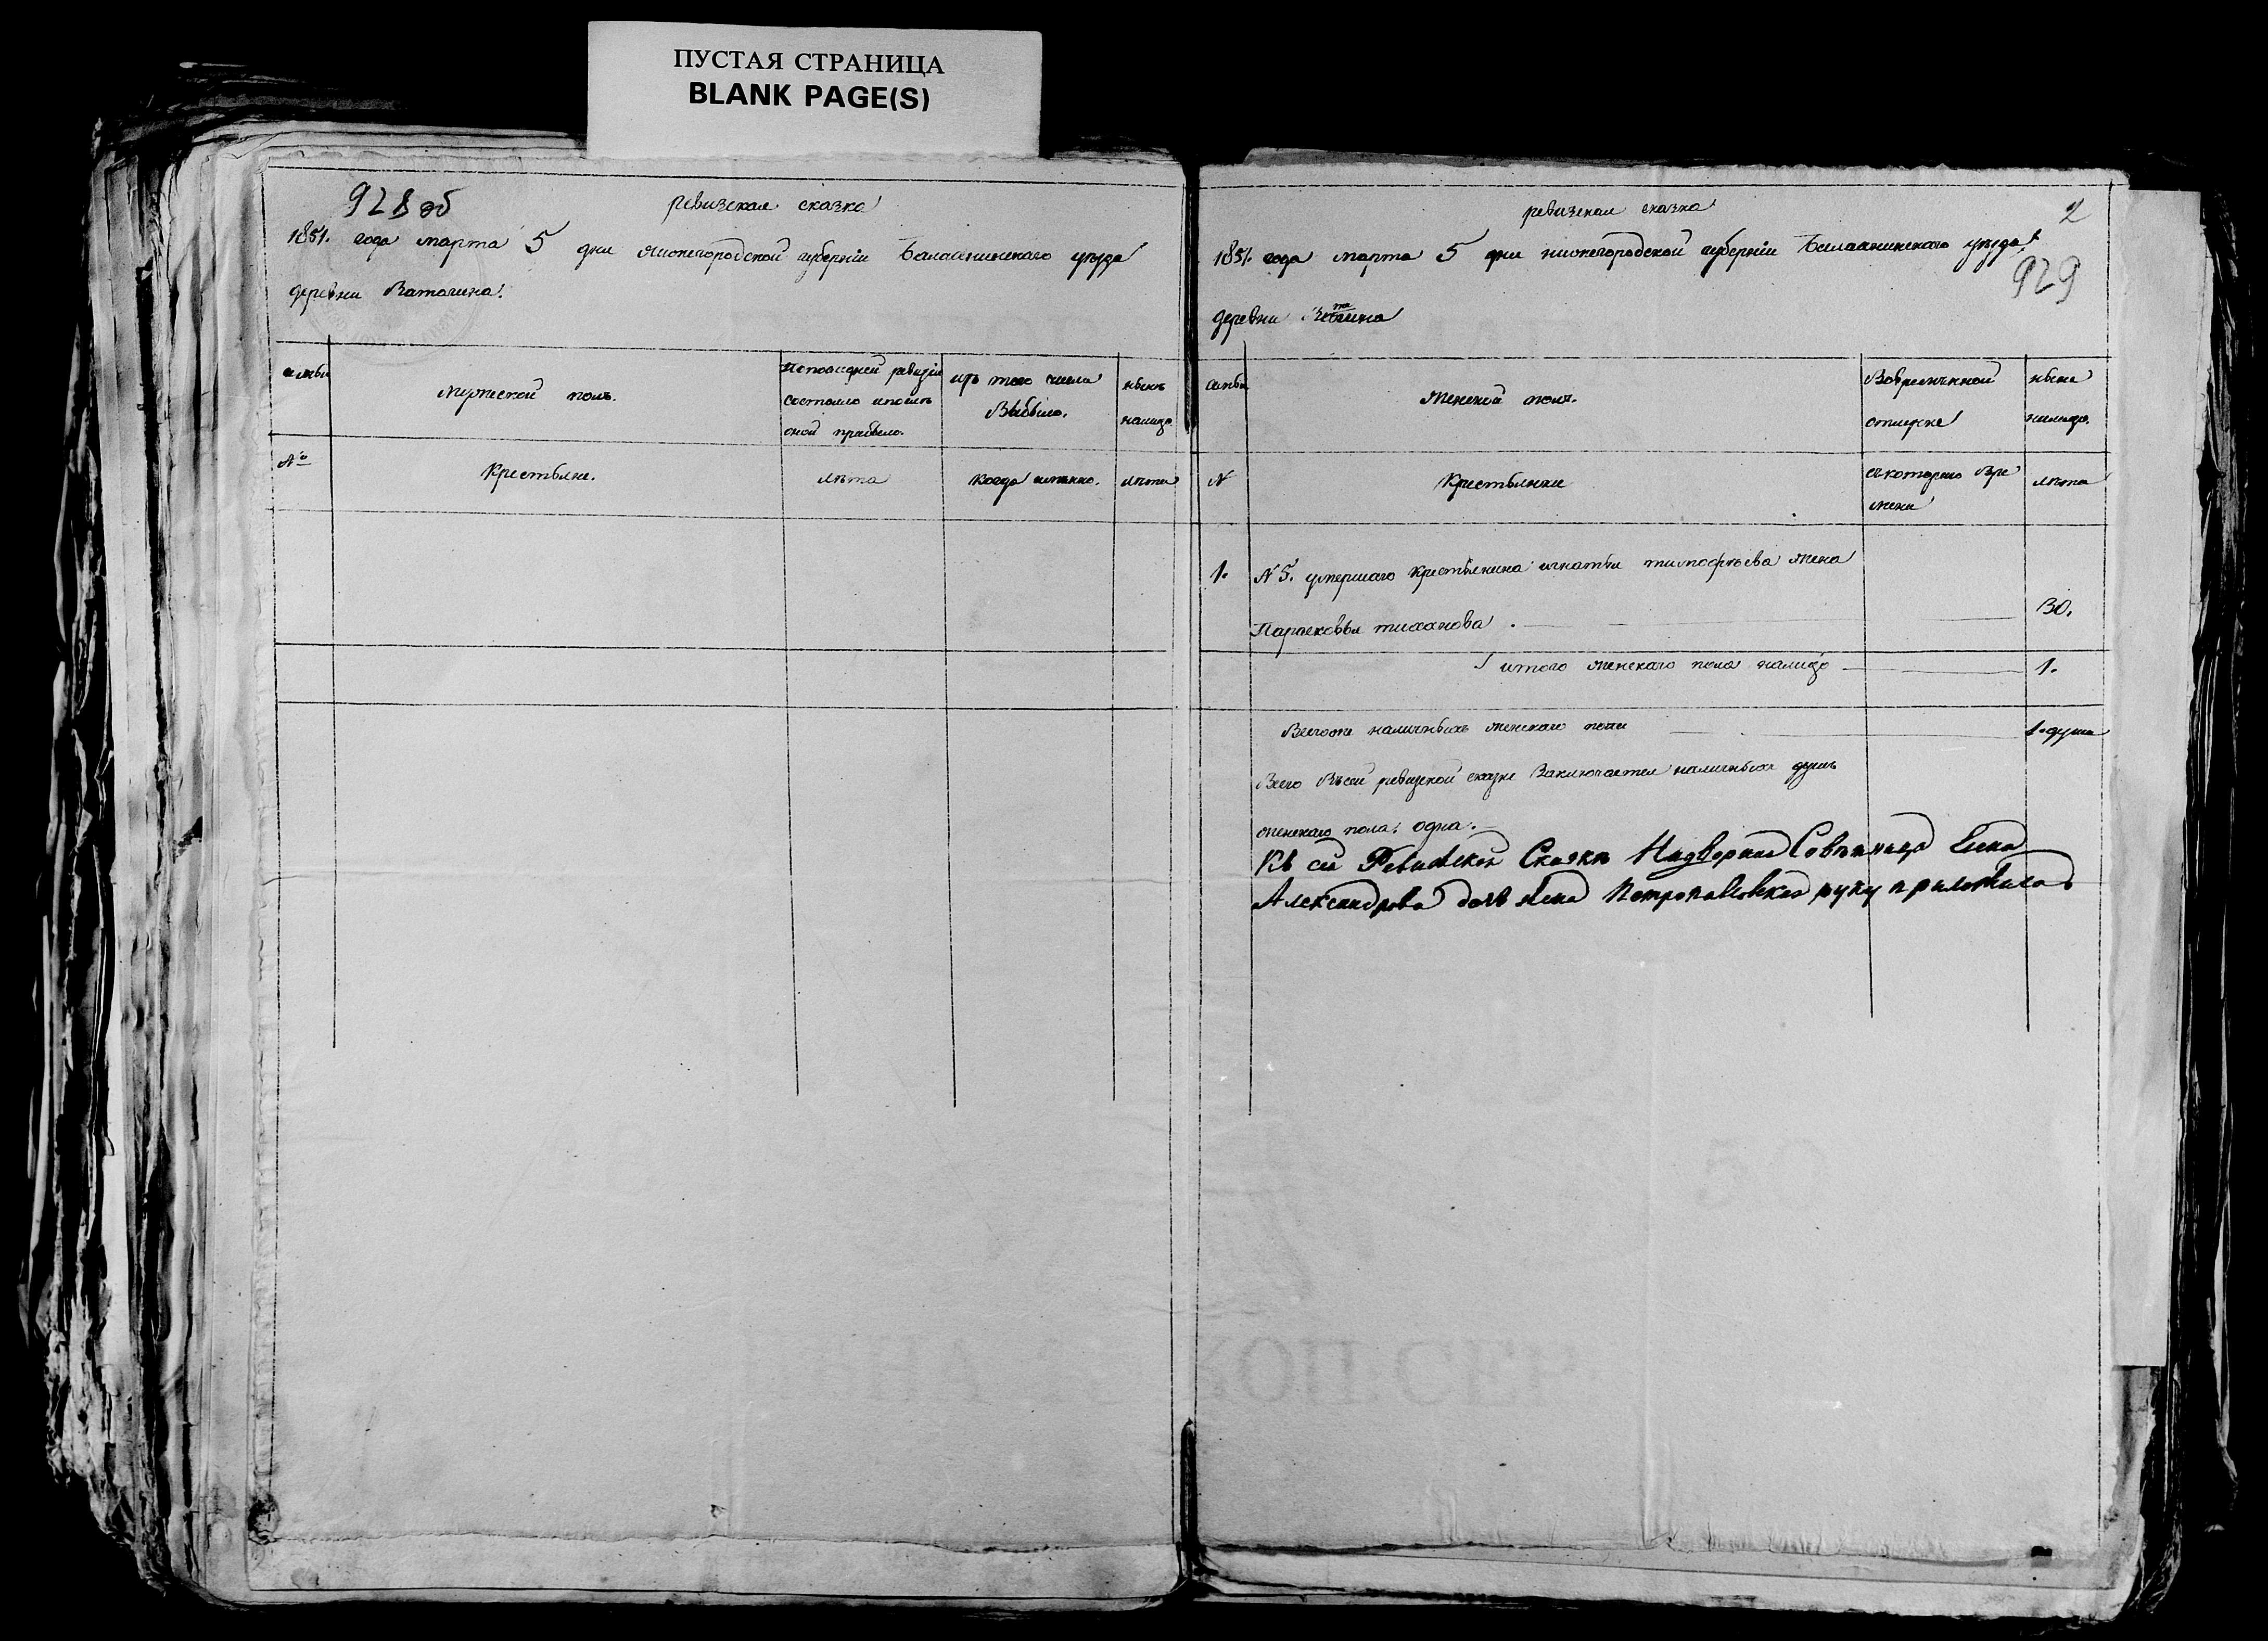 ПУСТАЯ СТРАНИЦА
BLANK PAGE(S)
928 об
ревизская сказка
1851. года марта 5 дня нижегородской губернiи Балахнинскаго уѣзда
деревни Ватагина.
семьи
мужеской полъ.
По последней ревизiи
состояло и послѣ
оной прибыло.
изъ того числа
выбыло.
ныне
налицо
№
Крестьяне.
лѣта
когда именно.
лѣта
2
929
ревизская сказка
1851. года марта 5 дня нижегородской губернiи Балахнинскаго уѣзда
деревни
семьи
Женской полъ.
Вовременной
отлучке
ныне
налицо.
№
Крестьянки
съ котораго вре
мени
лѣта
1. №5. умершаго крестьянина игнатья тимофѣева жена
Парасковья тиханова . 30.
итого женскаго пола налицо 1.
Всегоже наличныхъ женскаго пола 1. душа
Всего Въсей ревизской сказке Заключается наличныхъ душъ
женскаго пола: одна.
Къ сей Ревизской Сказкѣ Надворная Совѣтница Елена
Александрова дочь жена Петропавловская руку приложила